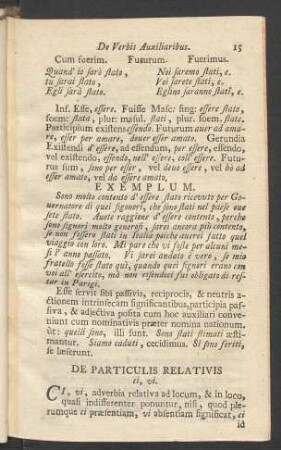 De Verbis Auxiliaribus. 15
Cum fuerim. Futurum. Fuerimus.
Quand' io sarò stato, Noi saremo stati, e.
tu sarai stato, Voi sarete stati, e.
Egli sarà stato. Eglino saranno stati, e.
Inf. Esse, essere. Fuisse Masc: sing: essere stato,
foem: stata, plur: masul. stati, plur. foem. state.
Participium existens essendo. Futurum auer ad ama-
re, esser per amare, douer esser amato. Gerundia
Existendi d'essere, ad essendum, per essere, essendo,
vel existendo, essendo, nell' essere, coll' essere. Futu-
rus sum, sono per esser, vel devo essere, vel hò ad
esser amato, vel da essere amato,
EXEMPLUM.
Sono molto contento d'essere stato ricevuto per Go-
uernatore di quei signori, che sono stati nel paese oue
sete stato. Auete raggione d'essere contento, perche
sono signori molto generosi, sarei ancora più contento,
se non fossero stati in Italia poiche auerei fatto quel
viaggio con loro. Mi pare che vi fosse per alcuni me-
si l'anno passato. Vi sarei andato è vero, se mio
fratello fosse stato quì, quando quei signori erano con
voi all' esercito, mà non essendoci fui obligato di re-
star in Parigi.
Esse servit sibi passivis, reciprocis, & neutris a-
ctionem intrinsecam significantibus, participia pas-
siva, & adjectiva posita cum hoc auxiliari conve-
niunt cum nominativis præter nomina nationum.
ut: quelli sono, illi sunt. Sono stati stimati æsti-
mantur. Siamo caduti, cecidimus. Si sono feriti,
se læserunt.
DE PARTICULIS RELATIVIS
ci, vi.
CI, vi, adverbia relativa ad locum, & in loco,
quasi indifferenter ponuntur, nisi, quod ple-
rumque ci præsentiam, vi absentiam significat, ci
id